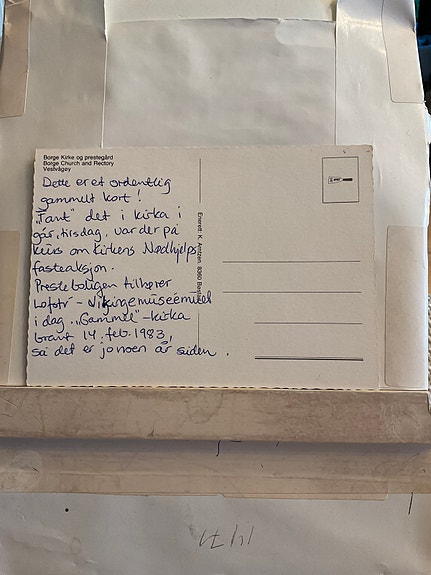 Borge Kirke og prestegård
Borge Church and Rectory
Vestvågøy
Dette er et ordentlig
gammelt kort!
"Fant" det i kirka i
går, tirsdag, var der på
kurs om kirkens Nødhjelps
fasteaksjon.
Presteboligen tilhører
Lofotr - Vikingemuséumet
i dag. "Gammel"-kirka
brant 14. feb. 1983,
så det er jo noen år siden.
Enerett: K. Arntzen. 8360 Bøstad